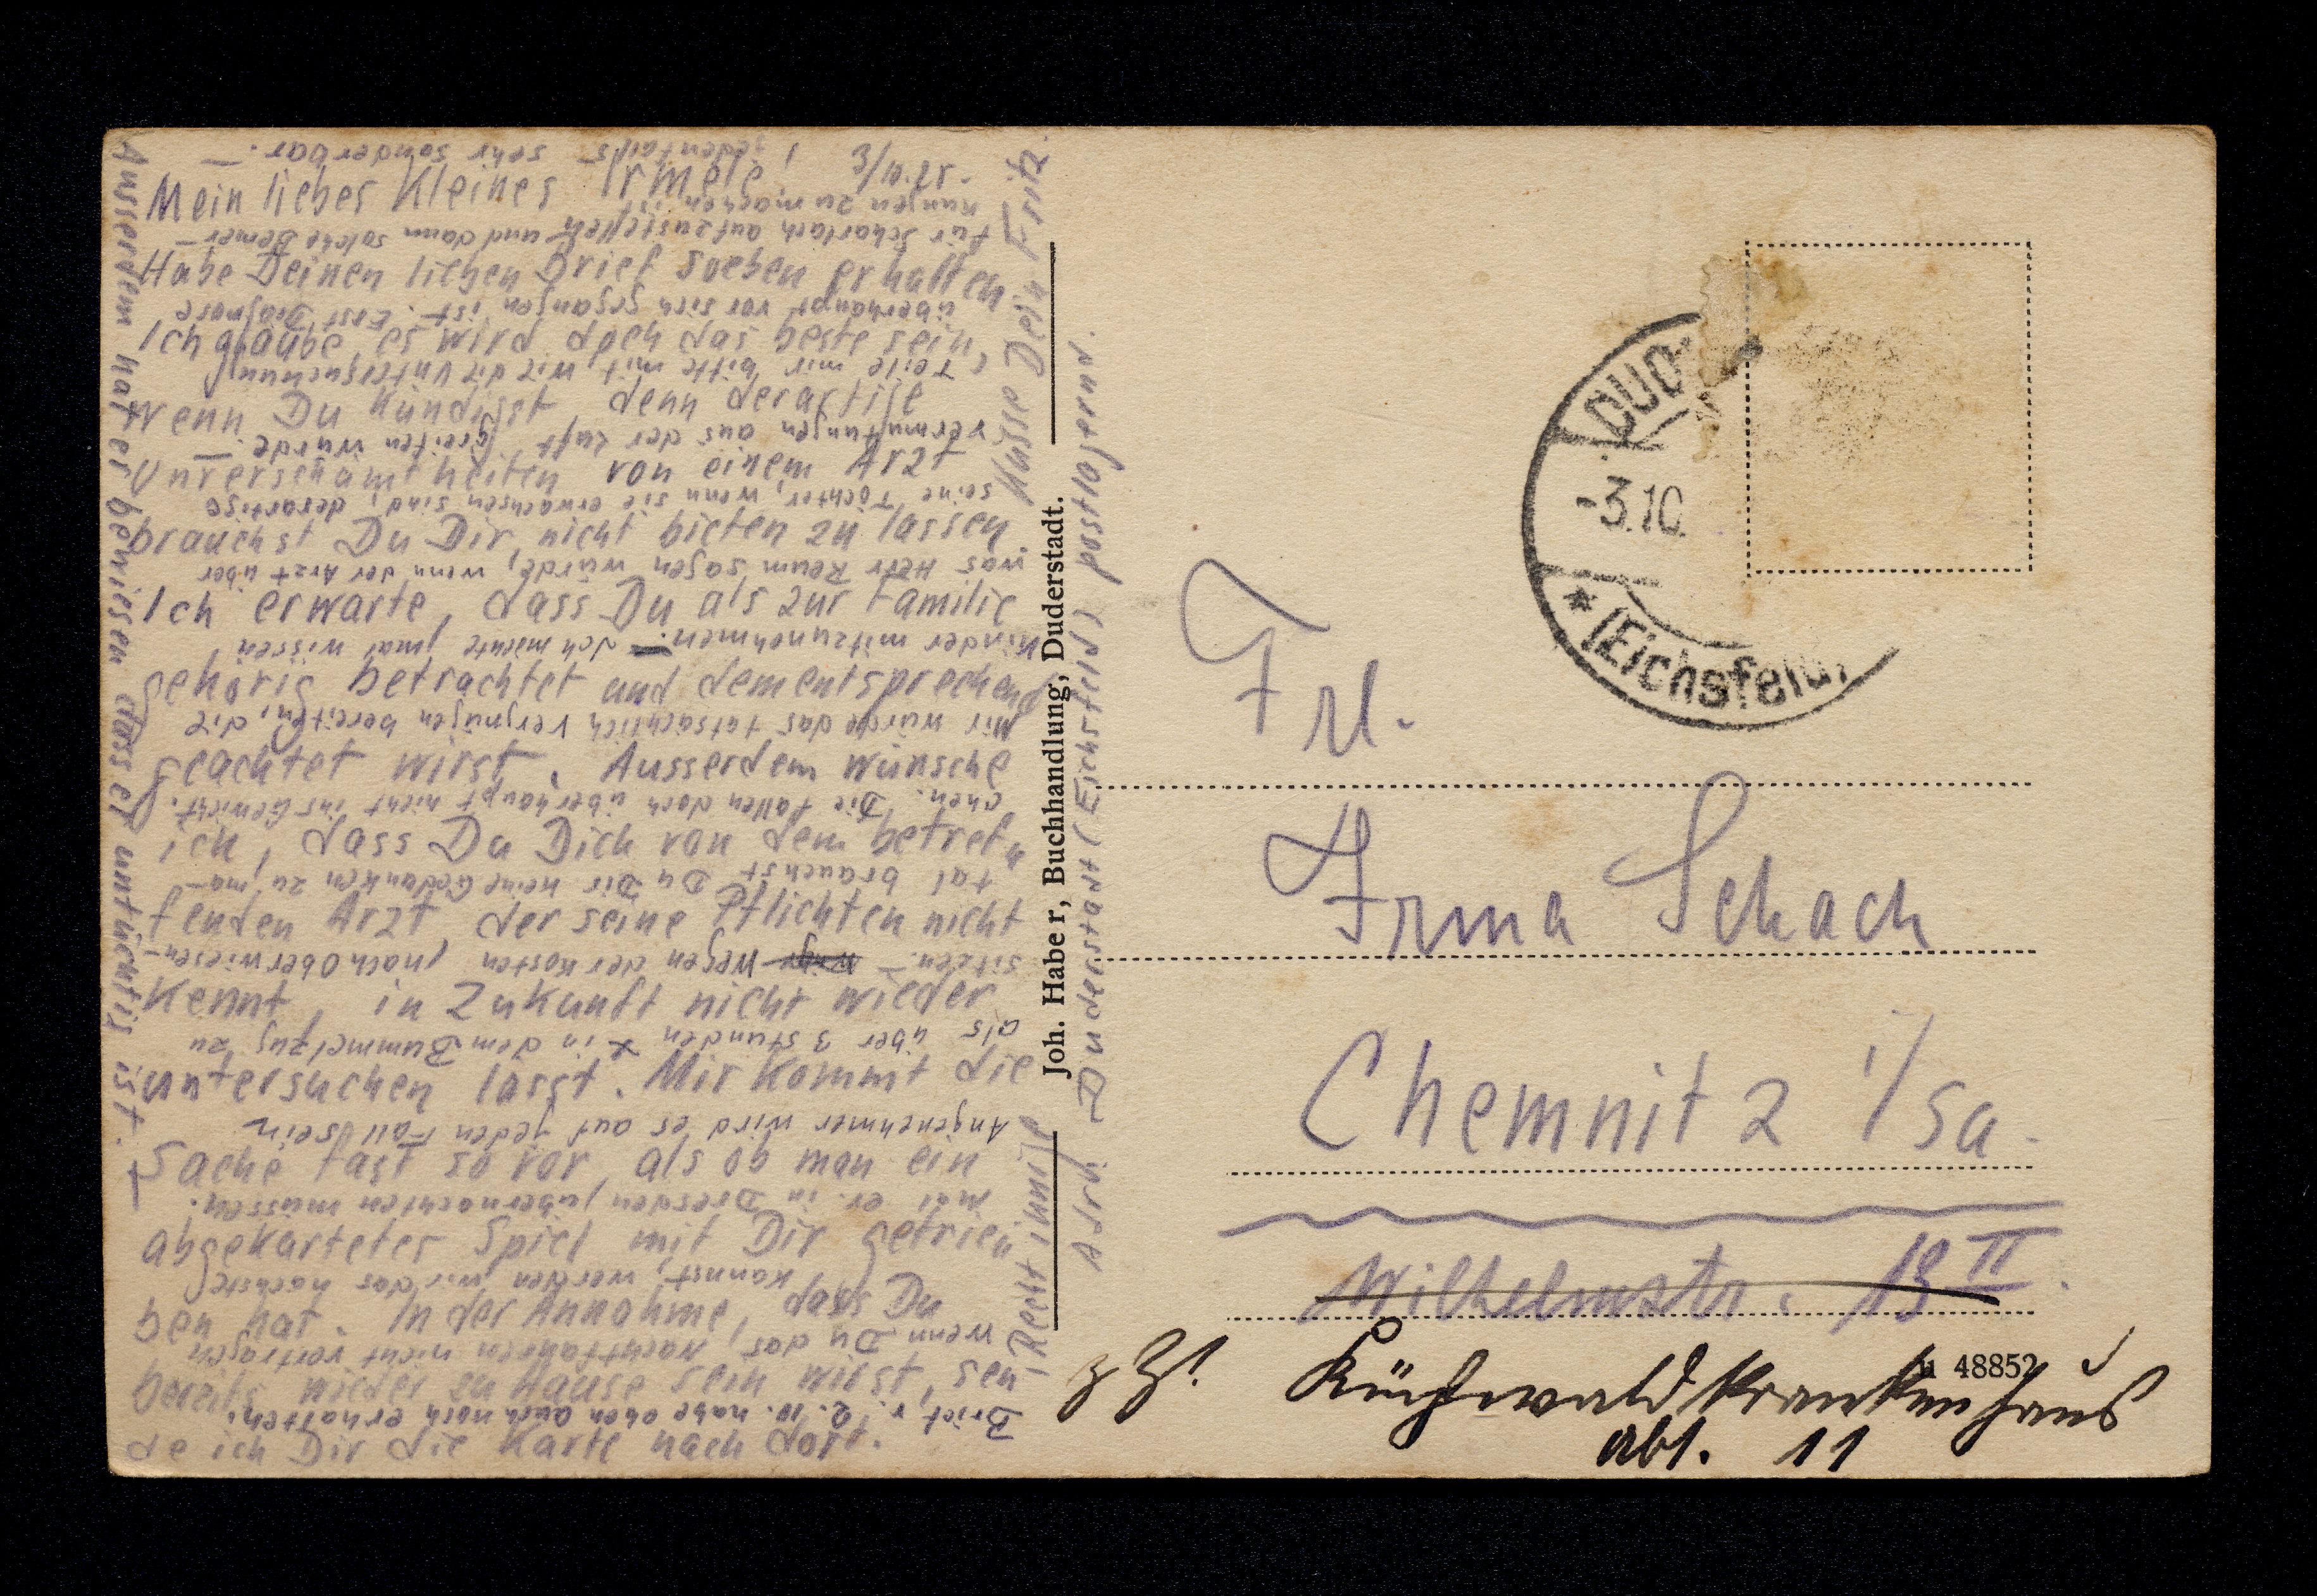 3/10.25.
Mein liebes kleines Irmele!
Habe Deinen lieben Brief soeben erhalten
Ich glaube, es wird doch das beste sein,
wenn Du kündigst, denn derartige
Unverschämtheiten von einem Arzt
brauchst Du Dir nicht bieten zu lassen
Ich erwarte, dass Du als zur Familie
gehörig betrachtet und dementsprechend
geachtet wirst. Ausserdem wünsche
ich, dass Du Dich von dem betref„
fenden Arzt, der seine Pflichten nicht
kennt, in Zukunft nicht wieder
untersuchen lässt. Mir kommt die
Sache fast so vor, als ob man ein
abgekartetes Spiel mit Dir getrie„
ben hat. In der Annahme, dass Du
bereits wieder zu Hause sein wirst, sen„
de ich Dir die Karte nach dort.
Brief v. 2.10. habe eben auch noch erhalten.
Wenn Du das Nachtfahren nicht vertragen
kannst, werden wir das nächste
Mal er. in Dresden übernachten müssen.
Angenehmer wird es auf jeden Fall sein
als über 3 Stunden in dem Bummelzug zu
sitzen. – wegen der Kosten nach Oberwiesen-
tal brauchst Du Dir keine Gedanken zu ma-
chen. Die fallen doch überhaupt nicht ins Gewicht.
Mir würde das tatsächlich Vergnügen bereiten, die
Kinder mitzunehmen. – Ich möchte mal wissen
was Herr Reum sagen würde, wenn der Arzt über
seine Töchter, wenn sie erwachsen sind, derartige
Vermutungen aus der Luft greifen würde. –
Teile mir bitte mit, wie die Untersuchung
überhaupt vor sich gegangen ist. Erst Diagnose
für Scharlach aufzustellen und dann solche Bemer-
kungen zu machen ist
jedenfalls sehr sonderbar. –
Ausserdem hat er bewiesen dass er untüchtig ist. –
Recht innige
Küsse Dein Fritz.
Adr. Duderstadt (Eichsfeld) postlagernd.
Joh. Haber, Buchhandlung, Duderstadt.
DUD
-3.10.
* (Eichsfeld)
Frl.
Irma Schach
Chemnitz i/Sa.
Wilhelmstr. 19 II.
z Zt. Küchwaldkrankenhaus
Abt. 11
48852